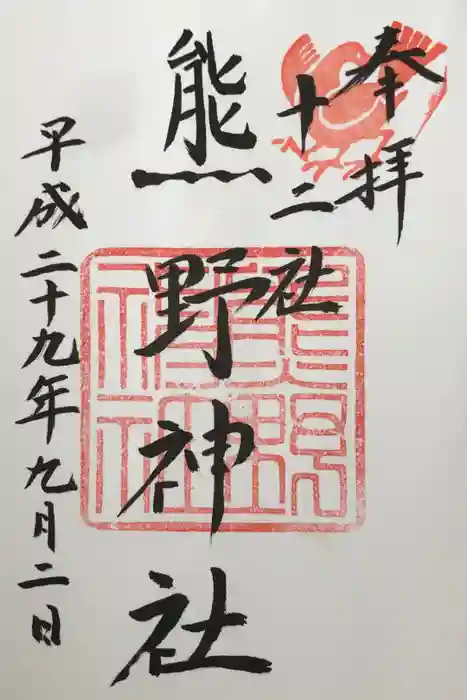 奉拝
十二社
熊野神社
平成二十九年九月二日